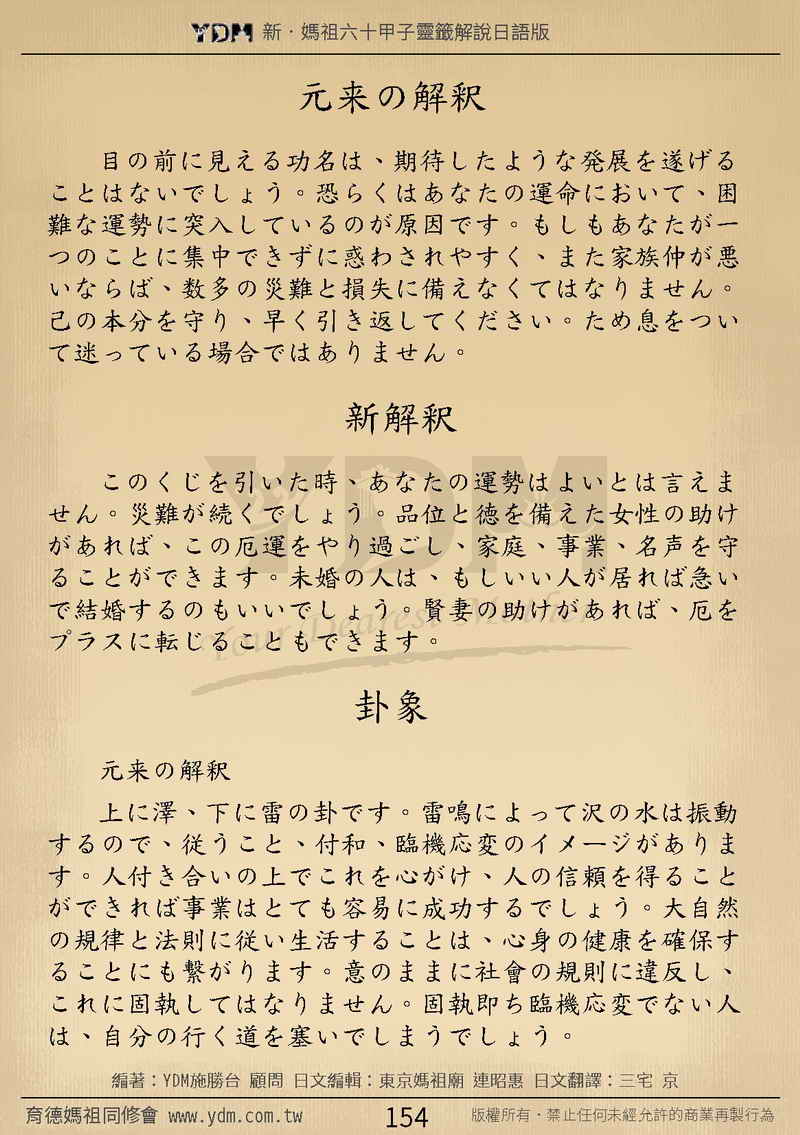 YDM 新・媽祖六十甲子靈籤解說日語版
元来の解釈
目の前に見える功名は、期待したような発展を遂げる
ことはないでしょう。恐らくはあなたの運命において、困
難な運勢に突入しているのが原因です。もしもあなたが一
つのことに集中できずに惑わされやすく、また家族仲が悪
いならば、数多の災難と損失に備えなくてはなりません。
己の本分を守り、早く引き返してください。ため息をつい
て迷っている場合ではありません。
新解釈
このくじを引いた時、あなたの運勢はよいとは言えま
せん。災難が続くでしょう。品位と徳を備えた女性の助け
があれば、この厄運をやり過ごし、家庭、事業、名声を守
ることができます。未婚の人は、もしいい人が居れば急い
で結婚するのもいいでしょう。賢妻の助けがあれば、厄を
プラスに転じることもできます。
YDM
Your Dearest Mother
卦象
元来の解釈
上に澤、下に雷の卦です。雷鳴によって沢の水は振動
するので、従うこと、付和、臨機応変のイメージがありま
す。人付き合いの上でこれを心がけ、人の信頼を得ること
ができれば事業はとても容易に成功するでしょう。大自然
の規律と法則に従い生活することは、心身の健康を確保す
ることにも繋がります。意のままに社會の規則に違反し、
これに固執してはなりません。固執即ち臨機応変でない人
は、自分の行く道を塞いでしまうでしょう。
編著：YDM施勝台 顧問 日文編輯：東京媽祖廟 連昭惠 日文翻譯：三宅 京
育德媽祖同修會 www.ydm.com.tw 154 版權所有・禁止任何未經允許的商業再製行為